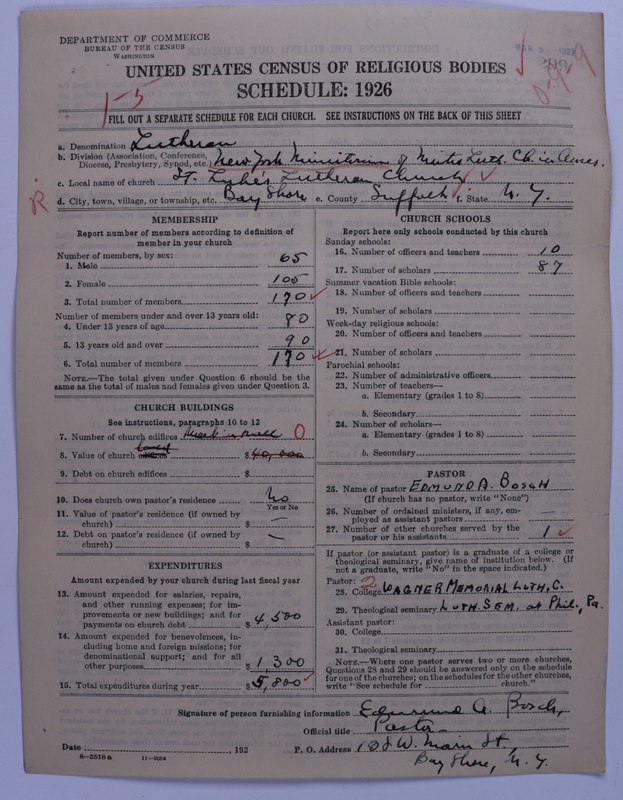 DEPARTMENT OF COMMERCE
BUREAU OF THE CENSUS
WASHINGTON
UNITED STATES CENSUS OF RELIGIOUS BODIES
SCHEDULE: 1926
1-5
FILL OUT A SEPARATE SCHEDULE FOR EACH CHURCH. SEE INSTRUCTIONS ON THE BACK OF THIS SHEET
a. Denomination Lutheran
b. Division (Association, Conference, Diocese, Presbytery, Synod, etc.) New York Ministerium of United Luth. Ch. in Amer.
c. Local name of church St. Luke's Lutheran Church
d. City, town, village, or township, etc. Bay Shore e. County Suffolk f. State N. Y.
MEMBERSHIP
Report number of members according to definition of
member in your church
Number of members, by sex:
1. Male 65
2. Female 105
3. Total number of members 170
Number of members under and over 13 years old:
4. Under 13 years of age 80
5. 13 years old and over 90
6. Total number of members 170
NOTE.—The total given under Question 6 should be the
same as the total of males and females given under Question 3.
CHURCH BUILDINGS
See instructions, paragraphs 10 to 12
7. Number of church edifices 0
8. Value of church $ 40,000
9. Debt on church edifices $
10. Does church own pastor's residence No
Yes or No
11. Value of pastor's residence (if owned by
church) $ —
12. Debt on pastor's residence (if owned by
church) $ —
EXPENDITURES
Amount expended by your church during last fiscal year
13. Amount expended for salaries, repairs,
and other running expenses; for im-
provements or new buildings; and for
payments on church debt $ 4,500
14. Amount expended for benevolences, in-
cluding home and foreign missions; for
denominational support; and for all
other purposes $ 1300
15. Total expenditures during year $ 5,800
CHURCH SCHOOLS
Report here only schools conducted by this church
Sunday schools:
16. Number of officers and teachers 10
17. Number of scholars 87
Summer vacation Bible schools:
18. Number of officers and teachers
19. Number of scholars
Week-day religious schools:
20. Number of officers and teachers
21. Number of scholars
Parochial schools:
22. Number of administrative officers
23. Number of teachers—
a. Elementary (grades 1 to 8)
b. Secondary
24. Number of scholars—
a. Elementary (grades 1 to 8)
b. Secondary
PASTOR
25. Name of pastor EDMUND A. BOSCH
(If church has no pastor, write "None")
26. Number of ordained ministers, if any, em-
ployed as assistant pastors —
27. Number of other churches served by the
pastor or his assistants 1
If pastor (or assistant pastor) is a graduate of a college or
theological seminary, give name of institution below. (If
not a graduate, write "No" in the space indicated.)
Pastor: 2
28. College WAGNER MEMORIAL LUTH. C.
29. Theological seminary LUTH. SEM. at Phil., Pa.
Assistant pastor:
30. College
31. Theological seminary
NOTE.—Where one pastor serves two or more churches,
Questions 28 and 29 should be answered only on the schedule
for one of the churches; on the schedules for the other churches,
write "See schedule for church."
Signature of person furnishing information Edmund A. Bosch,
Official title Pastor
Date , 192 P. O. Address 108 W. Main St,
Bay Shore, N. Y.
8—5518a 11—9034